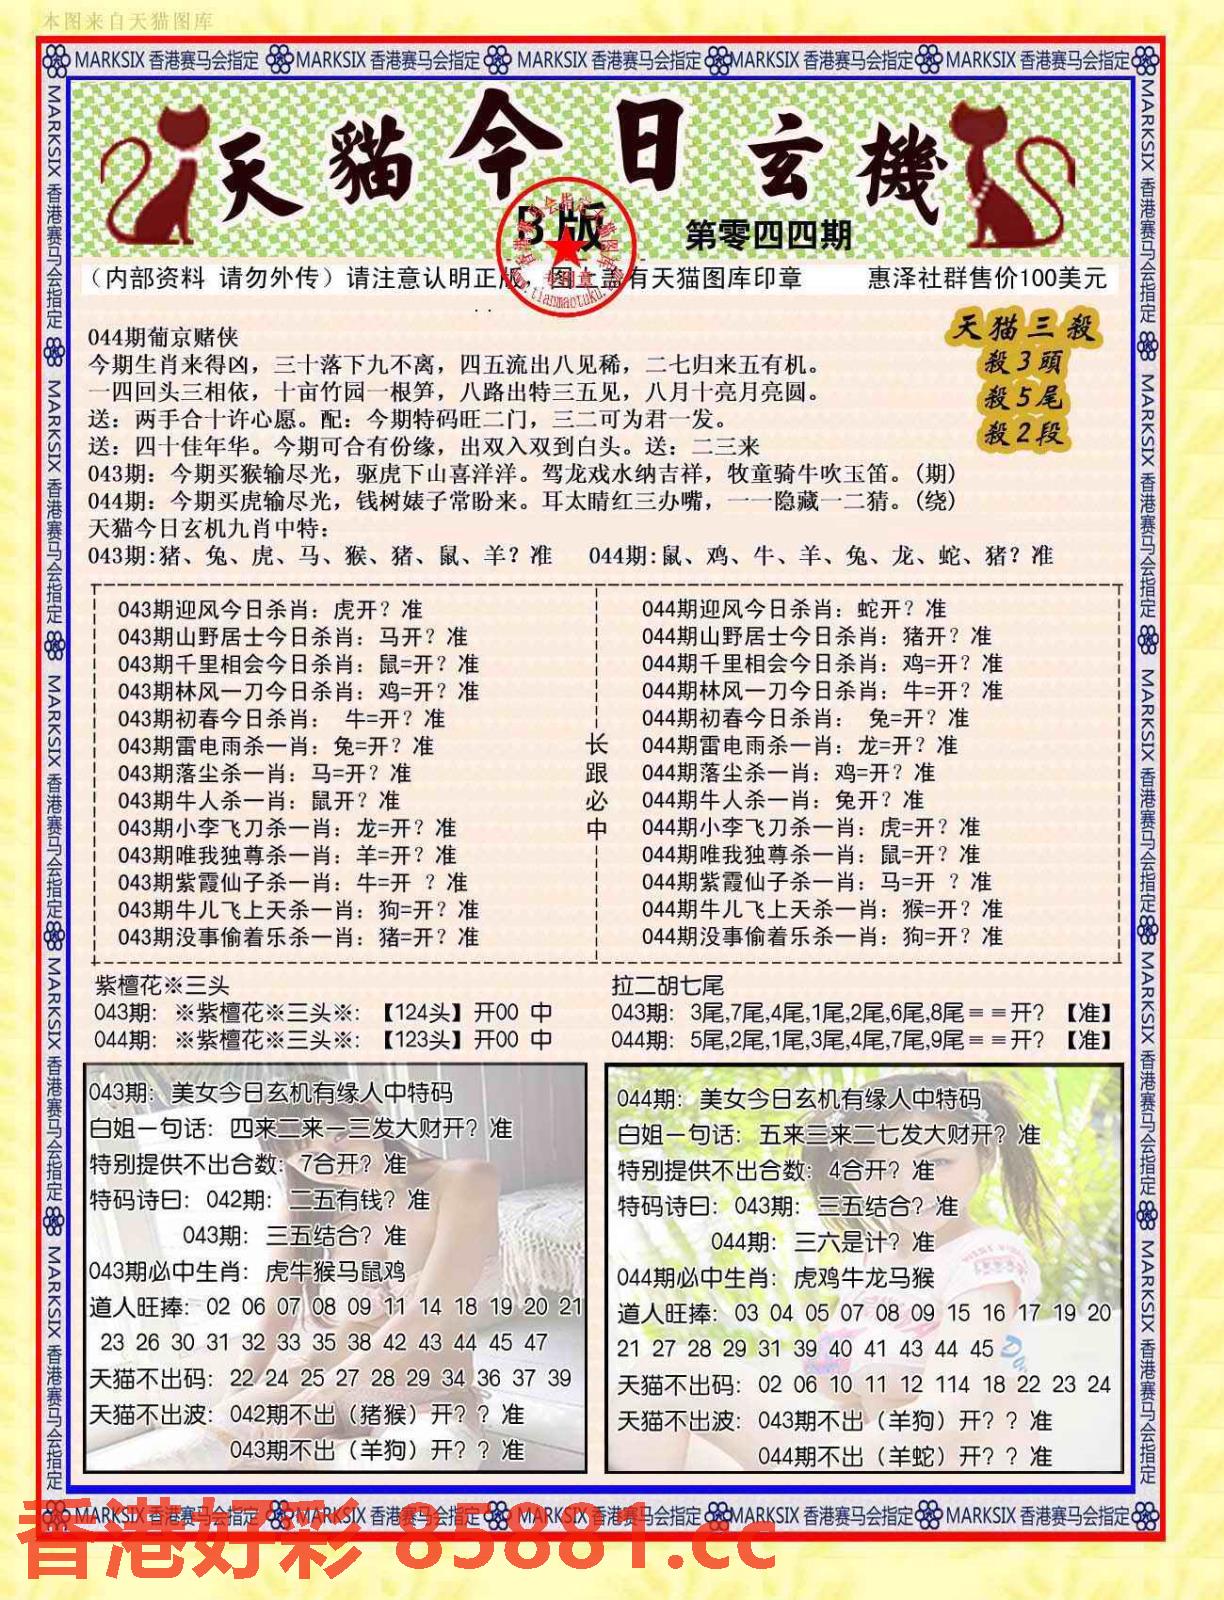 本图来自天猫图库
MARKSIX 香港赛马会指定 MARKSIX 香港赛马会指定 MARKSIX 香港赛马会指定 MARKSIX 香港赛马会指定 MARKSIX 香港赛马会指定
天貓今日玄機
B版
第零四四期
（内部资料 请勿外传）请注意认明正版 图上盖有天猫图库印章 惠泽社群售价100美元
天猫三殺
殺3頭
殺5尾
殺2段
044期葡京赌侠
今期生肖来得凶，三十落下九不离，四五流出八见稀，二七归来五有机。
一四回头三相依，十亩竹园一根笋，八路出特三五见，八月十亮月亮圆。
送：两手合十许心愿。配：今期特码旺二门，三二可为君一发。
送：四十佳年华。今期可合有份缘，出双入双到白头。送：二三来
043期：今期买猴输尽光，驱虎下山喜洋洋。驾龙戏水纳吉祥，牧童骑牛吹玉笛。(期)
044期：今期买虎输尽光，钱树婊子常盼来。耳太睛红三办嘴，一一隐藏一二猜。(绕)
天猫今日玄机九肖中特：
043期:猪、兔、虎、马、猴、猪、鼠、羊？准 044期:鼠、鸡、牛、羊、兔、龙、蛇、猪？准
043期迎风今日杀肖：虎开？准
043期山野居士今日杀肖：马开？准
043期千里相会今日杀肖：鼠=开？准
043期林风一刀今日杀肖：鸡=开？准
043期初春今日杀肖： 牛=开？准
043期雷电雨杀一肖：兔=开？准
043期落尘杀一肖：马=开？准
043期牛人杀一肖：鼠开？准
043期小李飞刀杀一肖：龙=开？准
043期唯我独尊杀一肖：羊=开？准
043期紫霞仙子杀一肖：牛=开 ？准
043期牛儿飞上天杀一肖：狗=开？准
043期没事偷着乐杀一肖：猪=开？准
长跟必中
044期迎风今日杀肖：蛇开？准
044期山野居士今日杀肖：猪开？准
044期千里相会今日杀肖：鸡=开？准
044期林风一刀今日杀肖：牛=开？准
044期初春今日杀肖： 兔=开？准
044期雷电雨杀一肖：龙=开？准
044期落尘杀一肖：鸡=开？准
044期牛人杀一肖：兔开？准
044期小李飞刀杀一肖：虎=开？准
044期唯我独尊杀一肖：鼠=开？准
044期紫霞仙子杀一肖：马=开 ？准
044期牛儿飞上天杀一肖：猴=开？准
044期没事偷着乐杀一肖：狗=开？准
紫檀花※三头
043期：※紫檀花※三头※：【124头】开00 中
044期：※紫檀花※三头※：【123头】开00 中
拉二胡七尾
043期：3尾,7尾,4尾,1尾,2尾,6尾,8尾＝＝开？【准】
044期：5尾,2尾,1尾,3尾,4尾,7尾,9尾＝＝开？【准】
043期：美女今日玄机有缘人中特码
白姐一句话：四来二来一三发大财开？准
特别提供不出合数：7合开？准
特码诗曰：042期：二五有钱？准
043期：三五结合？准
043期必中生肖：虎牛猴马鼠鸡
道人旺捧：02 06 07 08 09 11 14 18 19 20 21
23 26 30 31 32 33 35 38 42 43 44 45 47
天猫不出码：22 24 25 27 28 29 34 36 37 39
天猫不出波：042期不出（猪猴）开？？准
043期不出（羊狗）开？？准
044期：美女今日玄机有缘人中特码
白姐一句话：五来三来二七发大财开？准
特别提供不出合数：4合开？准
特码诗曰：043期：三五结合？准
044期：三六是计？准
044期必中生肖：虎鸡牛龙马猴
道人旺捧：03 04 05 07 08 09 15 16 17 19 20
21 27 28 29 31 39 40 41 43 44 45
天猫不出码：02 06 10 11 12 114 18 22 23 24
天猫不出波：043期不出（羊狗）开？？准
044期不出（羊蛇）开？？准
MARKSIX 香港赛马会指定 MARKSIX 香港赛马会指定 MARKSIX 香港赛马会指定 MARKSIX 香港赛马会指定 MARKSIX 香港赛马会指定
香港好彩 85881.cc